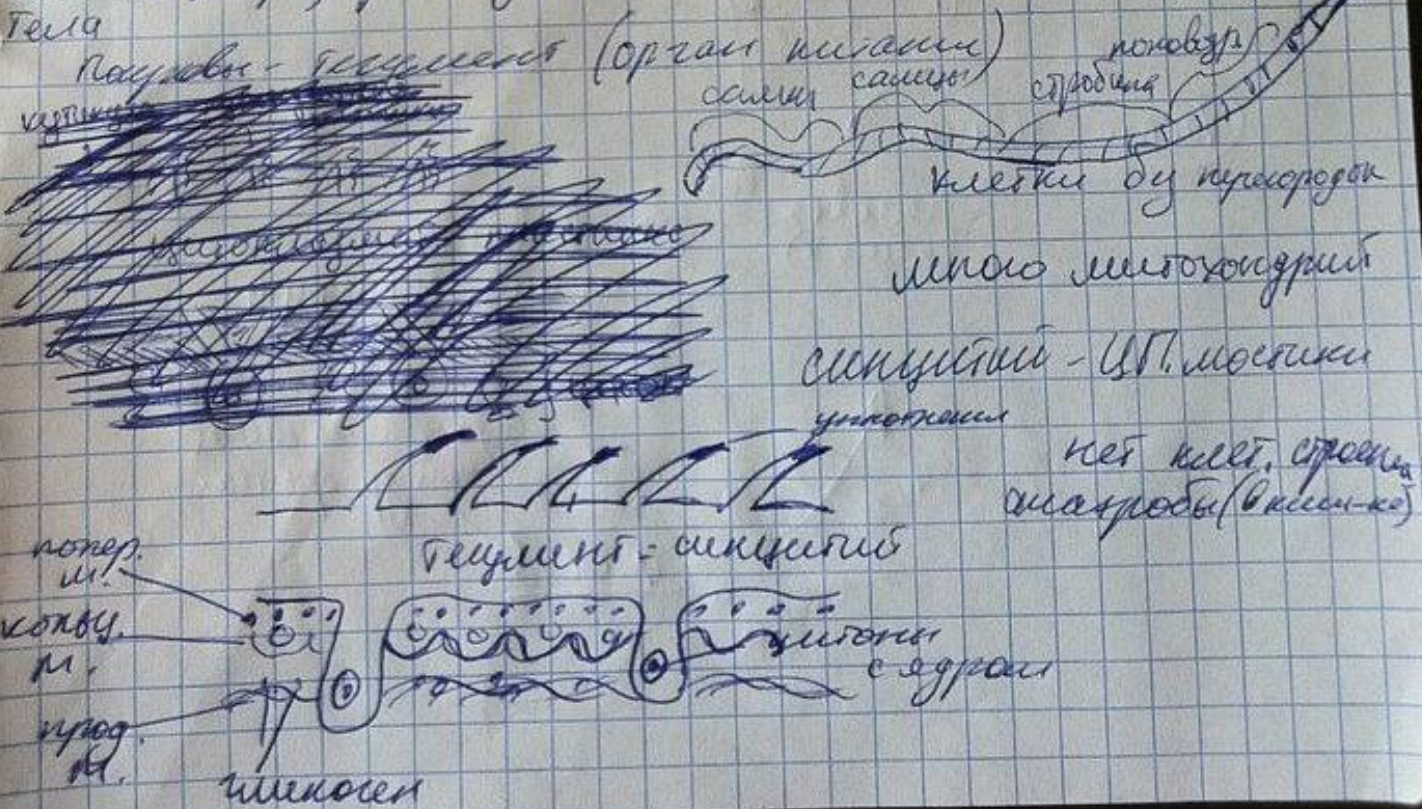 тела
Покровы - тегумент (орган питания)
самки самцы стробила
клетки без перегородок
много митохондрий
синцитий - ЦП. мостики
уплотнения
нет клет. строения
анаэробы (в киш-ке)
тегумент - синцитий
попер.
м.
кольц.
м.
цитоны
с ядром
прод.
м.
гликоген